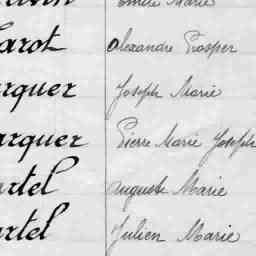 Emile Marie
arot Alexandre Prosper
rquer Joseph Marie
arquer Pierre Marie Joseph
rtel Auguste Marie
rtel Julien Marie